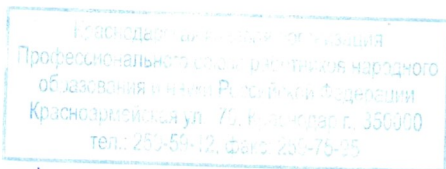 Краснодарская краевая организация
Профессионального союза работников народного
образования и науки Российской Федерации
Красноармейская ул., 70, Краснодар г., 350000
тел.: 259-59-12, факс: 259-75-95